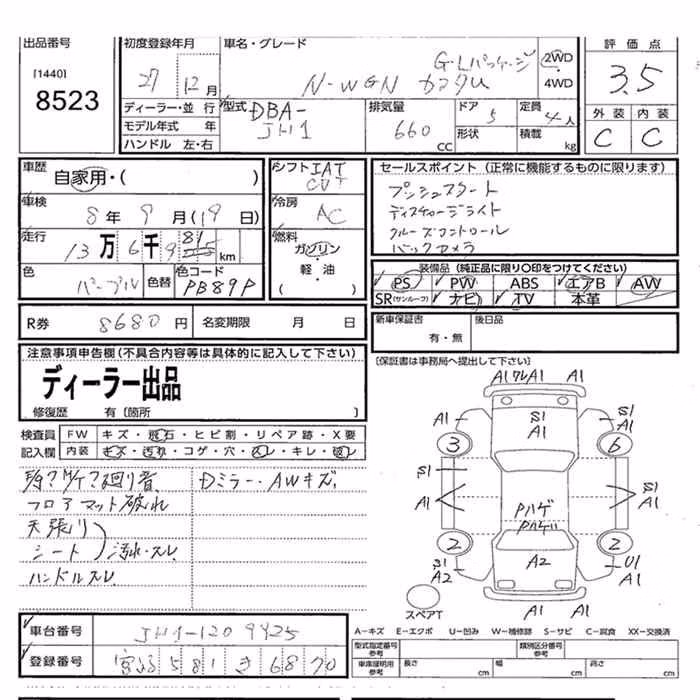 出品番号 初度登録年月 車名・グレード 評価点
[1440]
8523
27 年 12 月 N-WGN カスタム G・Lパッケージ 2WD
4WD
3.5
ディーラー・並行 型式 DBA-JH1 排気量 660 cc ドア 5 定員 4人
モデル年式 年 形状 積載 kg
ハンドル 左・右
外装 内装
C C
車歴 自家用・( )
シフト IAT CVT
セールスポイント (正常に機能するものに限ります)
プッシュスタート
ディスチャージライト
クルーズコントロール
バックカメラ
車検 8年 9月(19日)
冷房 AC
走行 13万6千9 81 km
燃料 ガソリン・軽油 ( )
色 パープル 色替 色コード PB89P
装備品 (純正品に限り○印をつけてください)
PS PW ABS エアB AW
SR(サンルーフ) ナビ TV 本革
R券 8680円 名変期限 月 日
新車保証書 有・無 後日品
注意事項申告欄(不具合内容等は具体的に記入して下さい)
ディーラー出品
修復歴 有〔箇所 〕
〔保証書は事務局へ提出して下さい〕
検査員 FW キズ・飛石・ヒビ割・リペア跡・X要
記入欄 内装 キズ・汚れ・コゲ・穴・スレ・キレ・破レ
廻り音 Dミラー・AWキズ
フロアマット破れ
天張り
シート 汚れ・スレ
ハンドルスレ
A1 ワレA1 A1
A1 S1 A1 S1 A1
3 6
S1 A1 S1 A1
Pハゲ
Pハゲ
2 2
S1 A2 A2 U1 A1
A1 A1
スペアT
車台番号 JH1-1209425
登録番号 581 き 6870
A-キズ E-エクボ U-凹み W-補修跡 S-サビ C-腐食 XX-交換済
型式指定番号 参考 類別区分番号 参考
車庫証明用 参考 長さ cm 幅 cm 高さ cm